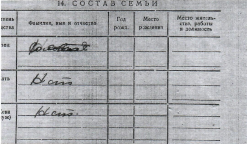 14. СОСТАВ СЕМЬИ
Фамилия, имя и отчество
Год рожд.
Место рождения
Место житель-
ства, работы
и должность
Нет
Нет